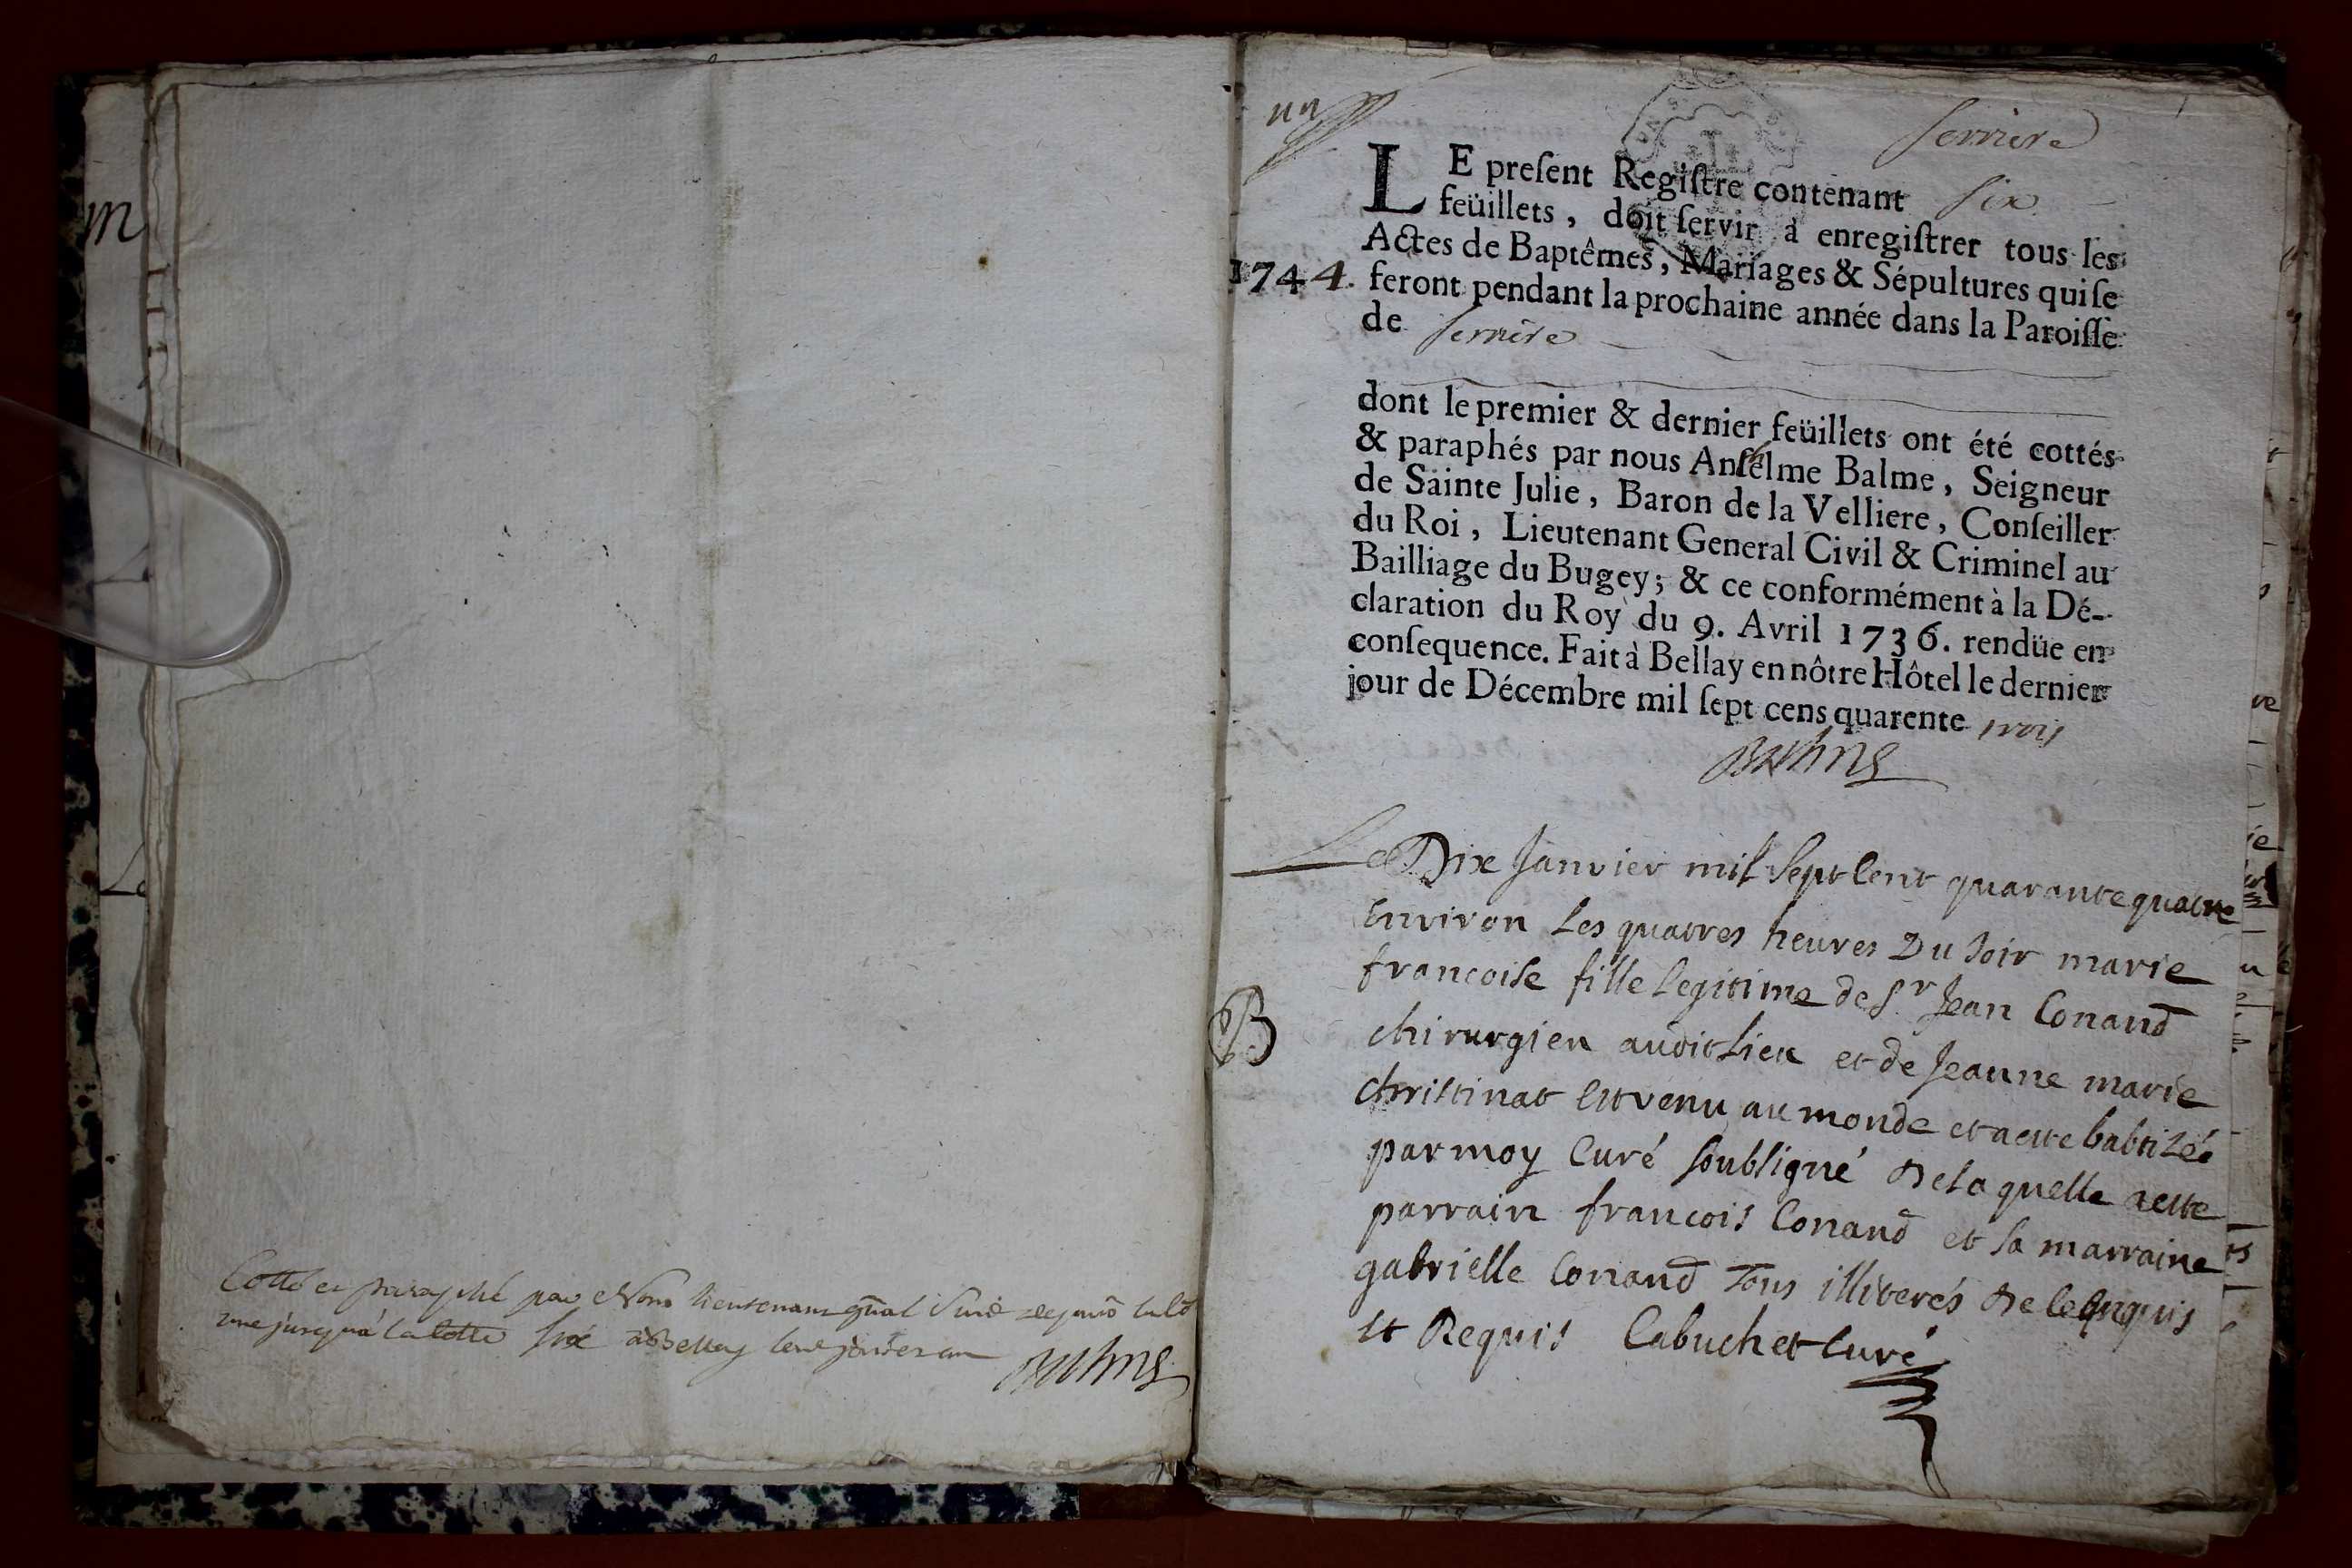 Cotté et paraphé par Nous lieutenant gnal
une jusqu'a la cotte six à Bellay
Balme
un
serriere
LE preſent Regiſtre contenant six
feüillets, doit ſervir à enregiſtrer tous les
Actes de Baptêmes, Mariages & Sépultures qui ſe
1744. feront pendant la prochaine année dans la Paroiſſe
de serriere
dont le premier & dernier feüillets ont été cottés
& paraphés par nous Anthelme Balme, Seigneur
de Sainte Julie, Baron de la Velliere, Conſeiller
du Roi, Lieutenant General Civil & Criminel au
Bailliage du Bugey; & ce conformément à la Dé-
claration du Roy du 9. Avril 1736. rendüe en
conſequence. Fait à Bellay en nôtre Hôtel le dernier
jour de Décembre mil ſept cens quarente trois
Balme
Le Dix Janvier mil sept cent quarante quatre
environ les quatres heures Du soir marie
francoise fille legitime de Sr Jean Conand
B
chirurgien audit lieu et de Jeanne marie
christinat est venu au monde et a este babtisée
par moy curé soubsigné De la quelle a este
parrain francois Conand et la marraine
gabrielle Conand Tous illiterés De ce enquis
et Requis Cabuchet curé